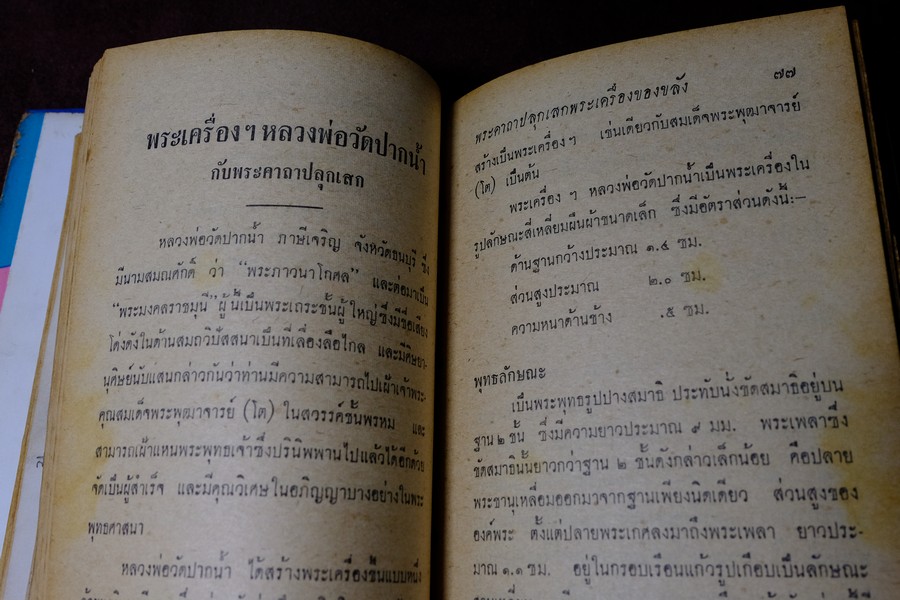 พระเครื่องฯ หลวงพ่อวัดปากน้ำ
กับพระคาถาปลุกเสก
หลวงพ่อวัดปากน้ำ ภาษีเจริญ จังหวัดธนบุรี ซึ่ง
มีนามสมณศักดิ์ ว่า “พระภาวนาโกศล” และต่อมาเป็น
“พระมงคลราชมุนี” ผู้นี้เป็นพระเถระชั้นผู้ใหญ่ซึ่งมีชื่อเสียง
โด่งดังในด้านสมถวิปัสสนาเป็นที่เลื่องลือไกล และมีศิษยา-
นุศิษย์นับแสนกล่าวกันว่าท่านมีความสามารถไปเฝ้าเจ้าพระ-
คุณสมเด็จพระพุฒาจารย์ (โต) ในสวรรค์ชั้นพรหม และ
สามารถเฝ้าแหนพระพุทธเจ้าซึ่งปรินิพพานไปแล้วได้อีกด้วย
จัดเป็นผู้สำเร็จ และมีคุณวิเศษในอภิญญาบางอย่างในพระ
พุทธศาสนา
หลวงพ่อวัดปากน้ำ ได้สร้างพระเครื่องขึ้นแบบหนึ่ง
พระคาถาปลุกเสกพระเครื่องของขลัง ๗๗
สร้างเป็นพระเครื่องฯ เช่นเดียวกับสมเด็จพระพุฒาจารย์
(โต) เป็นต้น
พระเครื่อง ๆ หลวงพ่อวัดปากน้ำเป็นพระเครื่องใน
รูปลักษณะสี่เหลี่ยมผืนผ้าขนาดเล็ก ซึ่งมีอัตราส่วนดังนี้:—
ด้านฐานกว้างประมาณ ๑.๕ ซม.
ส่วนสูงประมาณ ๒.๐ ซม.
ความหนาด้านข้าง .๕ ซม.
พุทธลักษณะ
เป็นพระพุทธรูปปางสมาธิ ประทับนั่งขัดสมาธิอยู่บน
ฐาน ๒ ชั้น ซึ่งมีความยาวประมาณ ๙ มม. พระเพลาซึ่ง
ขัดสมาธินั้นยาวกว่าฐาน ๒ ชั้นดังกล่าวเล็กน้อย คือปลาย
พระชานุเหลื่อมออกมาจากฐานเพียงนิดเดียว ส่วนสูงของ
องค์พระ ตั้งแต่ปลายพระเกศลงมาถึงพระเพลา ยาวประ-
มาณ ๑.๑ ซม. อยู่ในกรอบเรือนแก้วรูปเกือบเป็นลักษณะ